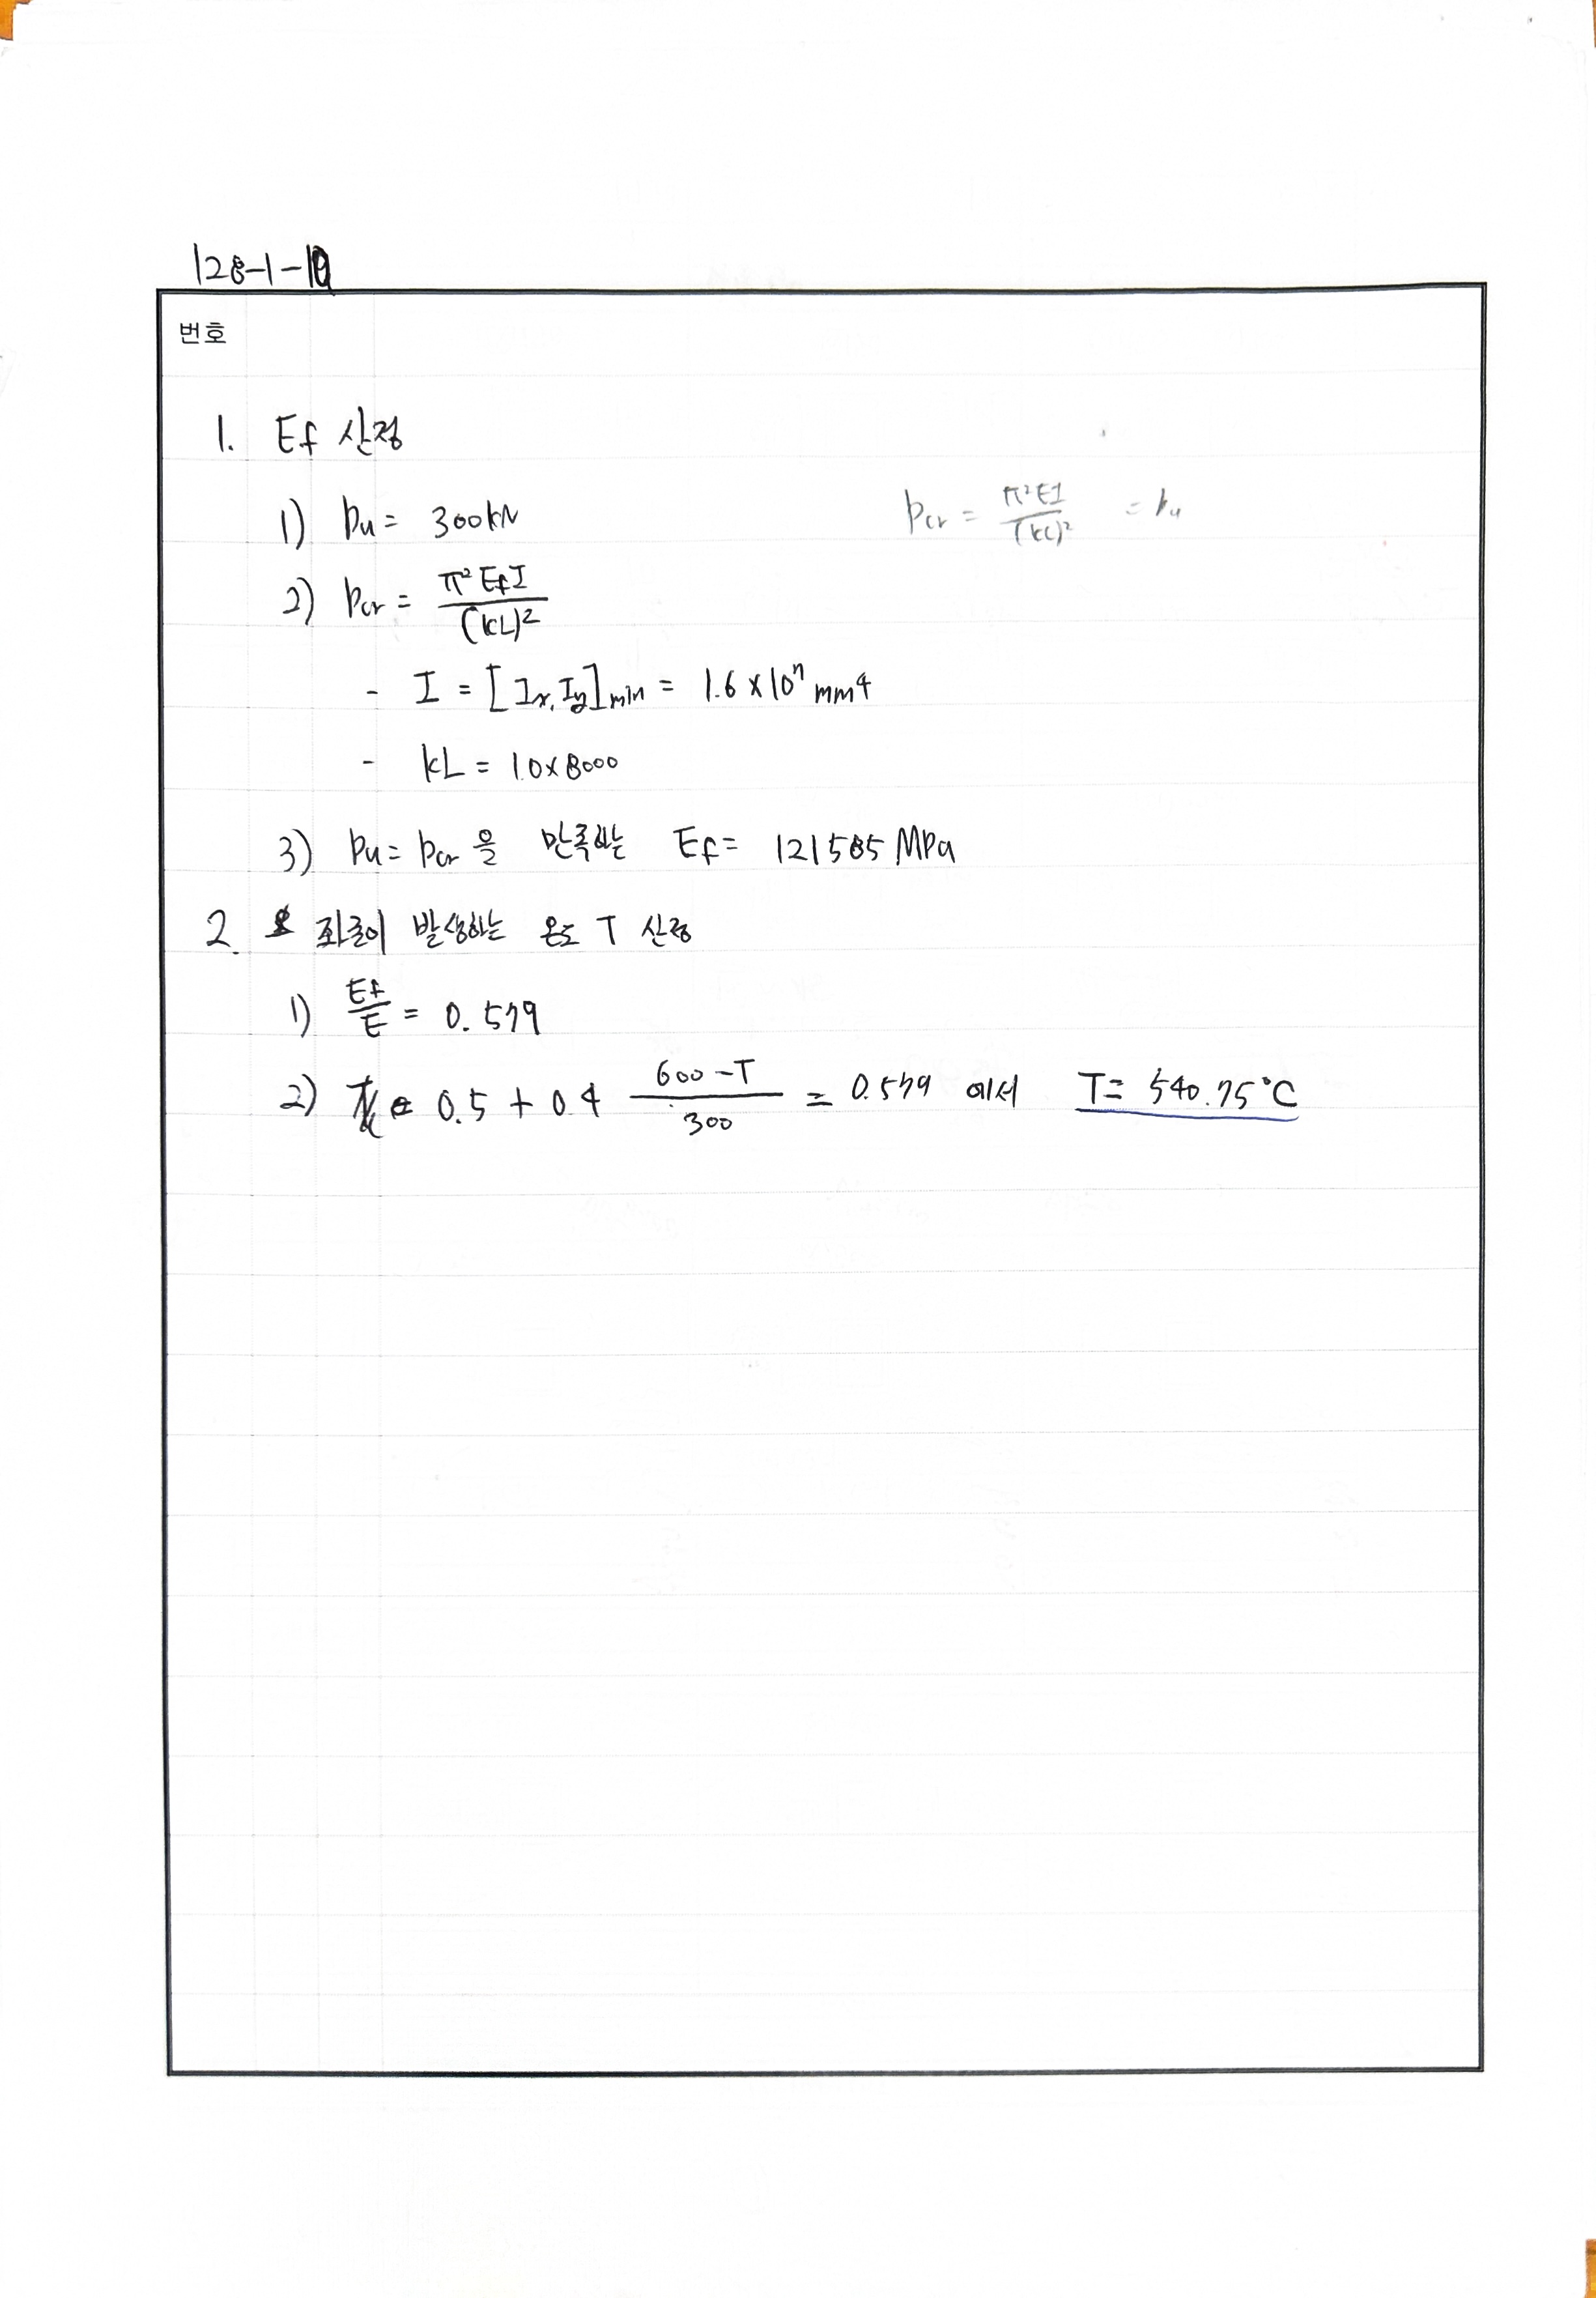 128-1-10
번호
1. Ef 산정
1) Pu = 300kN
Pcr = π²EI/(kL)² = Pu
2) Pcr = π²EfI/(kL)²
- I = [Ix, Iy]min = 1.6×10⁷ mm4
- kL = 1.0×8000
3) Pu = Pcr 을 만족하는 Ef = 121585 MPa
2. 좌굴이 발생하는 온도 T 산정
1) Ef/E = 0.579
2) 0.5 + 0.4 (600-T)/300 = 0.579 에서 T = 540.75°C